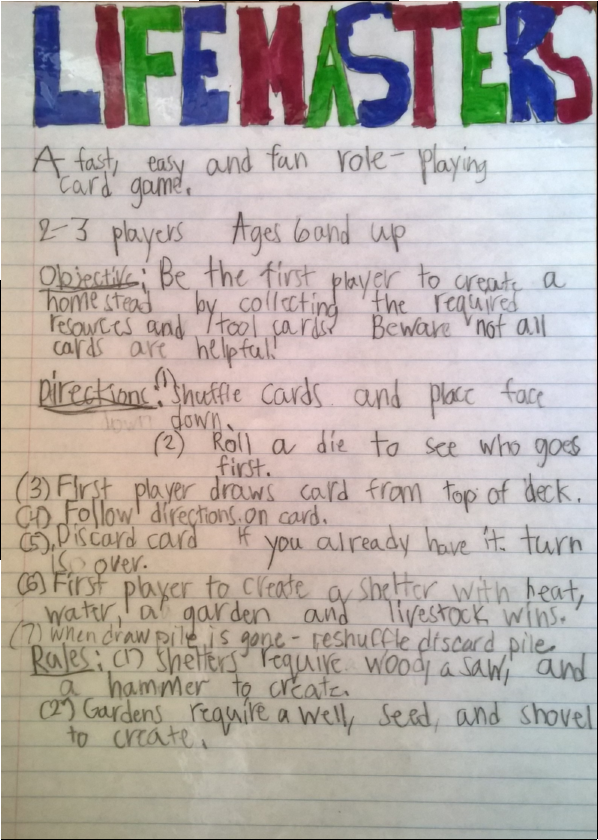 LIFEMASTERS
A fast, easy and fun role-playing
card game.
2-3 players Ages 6 and up
Objective: Be the first player to create a
homestead by collecting the required
resources and /tool cards. Beware not all
cards are helpful!
Directions: (1) Shuffle cards and place face
down.
(2) Roll a die to see who goes
first.
(3) First player draws card from top of deck.
(4) Follow directions on card.
(5) Discard card if you already have it. turn
is over.
(6) First player to create a shelter with heat,
water, a garden and livestock wins.
(7) when draw pile is gone - reshuffle discard pile.
Rules: (1) Shelters require wood, a saw, and
a hammer to create.
(2) Gardens require a well, seed, and shovel
to create.